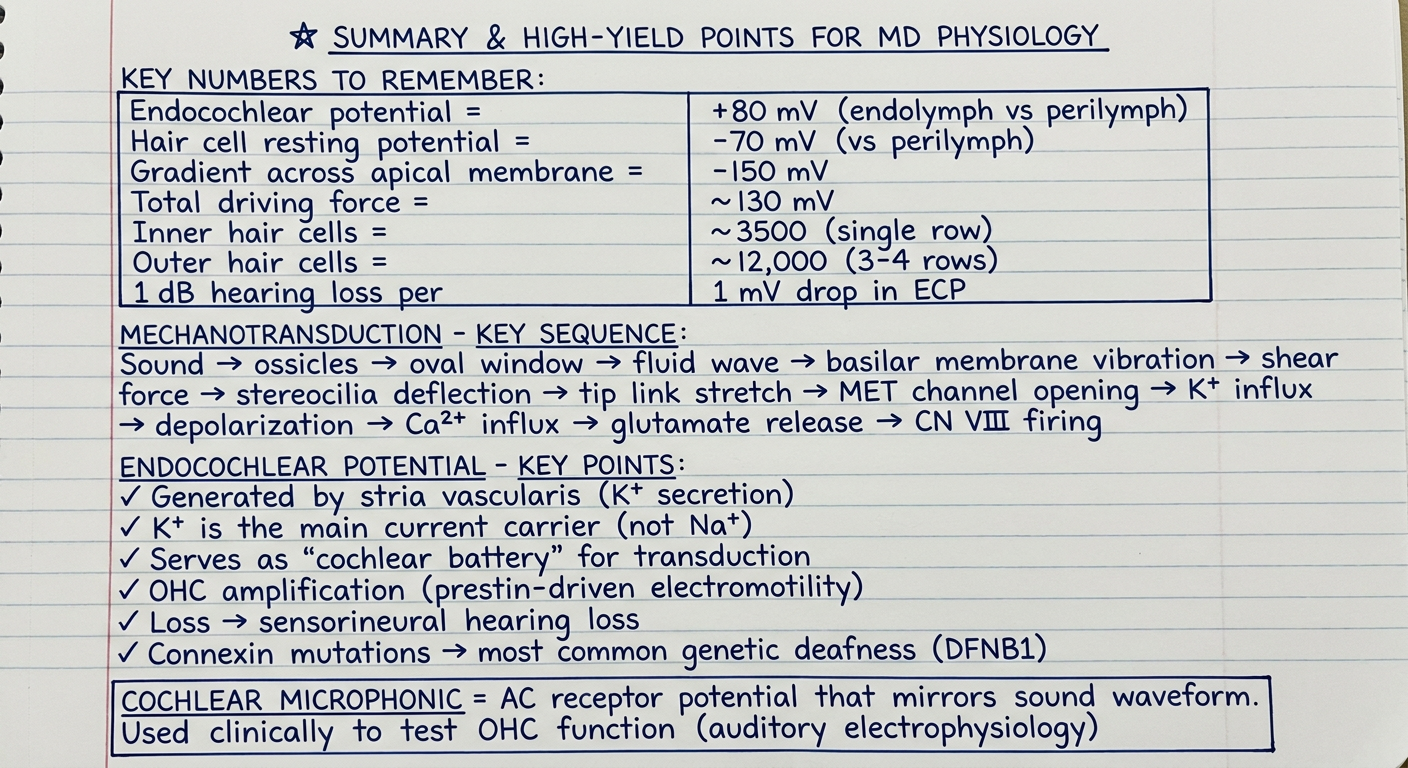 ☆ SUMMARY & HIGH-YIELD POINTS FOR MD PHYSIOLOGY
KEY NUMBERS TO REMEMBER:
Endocochlear potential = +80 mV (endolymph vs perilymph)
Hair cell resting potential = -70 mV (vs perilymph)
Gradient across apical membrane = -150 mV
Total driving force = ~130 mV
Inner hair cells = ~3500 (single row)
Outer hair cells = ~12,000 (3-4 rows)
1 dB hearing loss per 1 mV drop in ECP
MECHANOTRANSDUCTION - KEY SEQUENCE:
Sound → ossicles → oval window → fluid wave → basilar membrane vibration → shear
force → stereocilia deflection → tip link stretch → MET channel opening → K⁺ influx
→ depolarization → Ca²⁺ influx → glutamate release → CN VIII firing
ENDOCOCHLEAR POTENTIAL - KEY POINTS:
✓ Generated by stria vascularis (K⁺ secretion)
✓ K⁺ is the main current carrier (not Na⁺)
✓ Serves as “cochlear battery” for transduction
✓ OHC amplification (prestin-driven electromotility)
✓ Loss → sensorineural hearing loss
✓ Connexin mutations → most common genetic deafness (DFNB1)
COCHLEAR MICROPHONIC = AC receptor potential that mirrors sound waveform.
Used clinically to test OHC function (auditory electrophysiology)